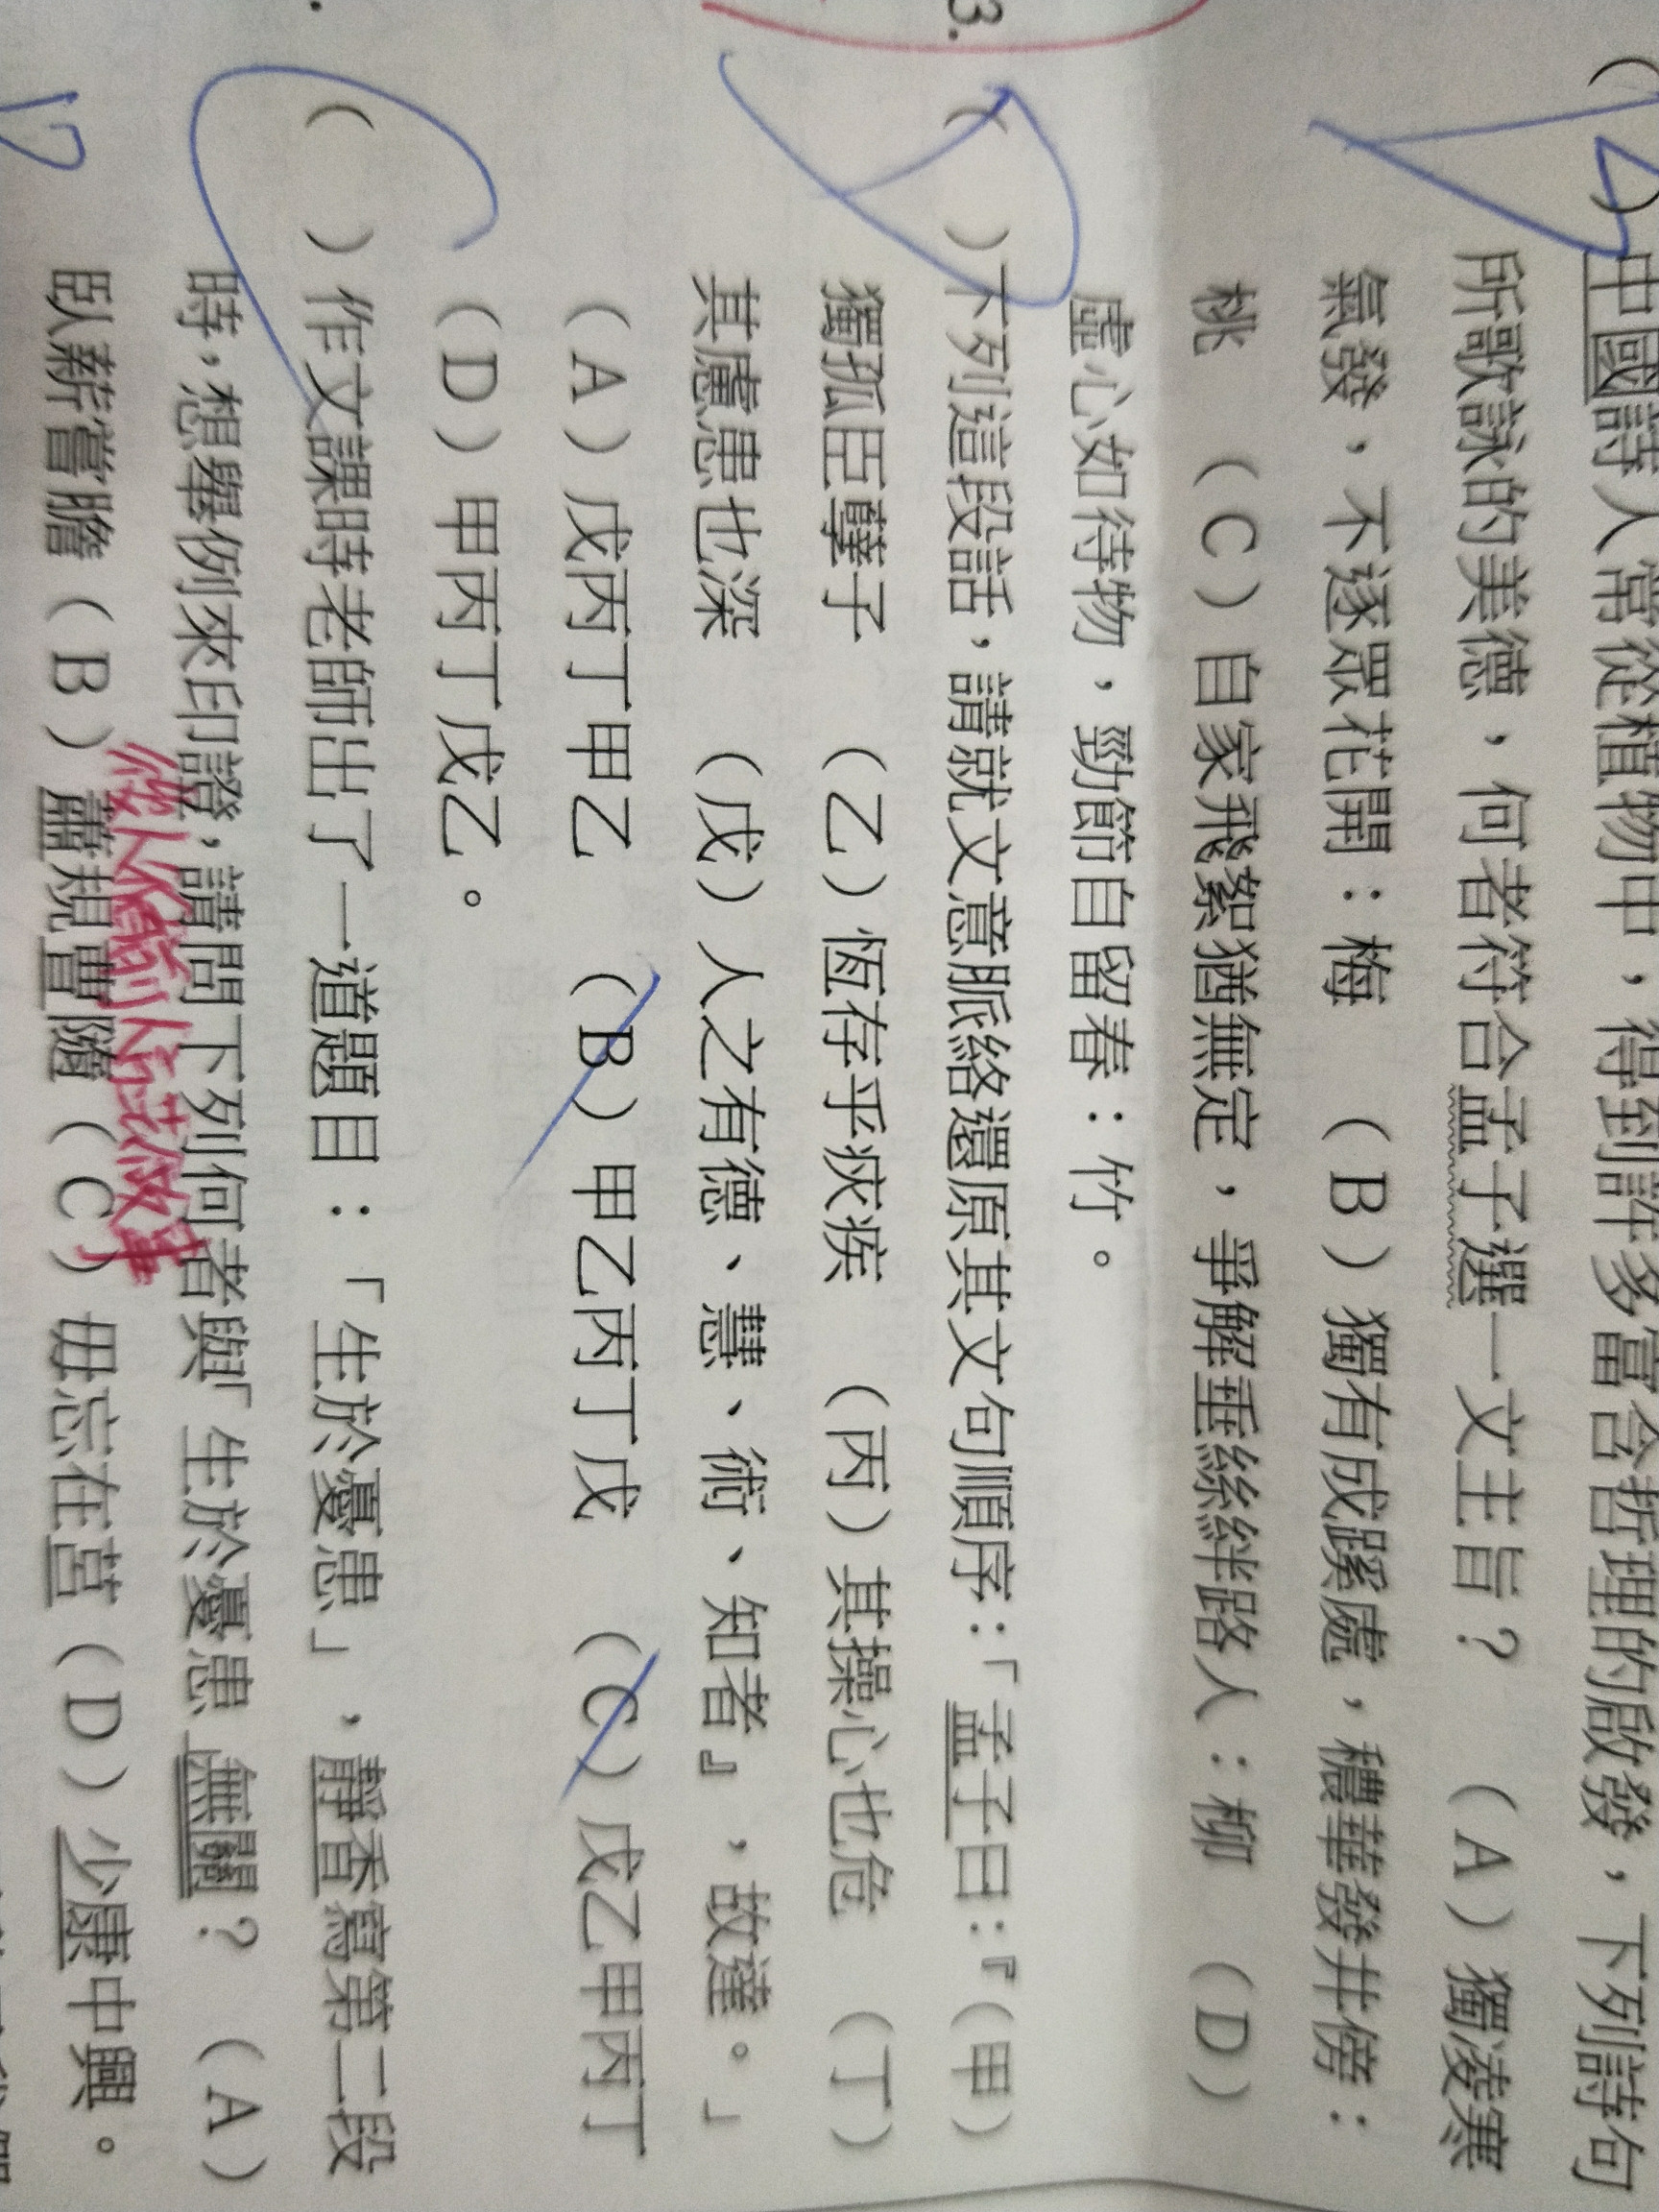 (A)中國詩人常從植物中，得到許多富含哲理的啟發，下列詩句
所歌詠的美德，何者符合孟子選一文主旨？ （A）獨凌寒
氣發，不逐眾花開：梅 （B）獨有成蹊處，穠華發井傍：
桃 （C）自家飛絮猶無定，爭解垂絲絆路人：柳 （D）
虛心如待物，勁節自留春：竹。
3. ( )下列這段話，請就文意脈絡還原其文句順序：「孟子曰：『（甲）
獨孤臣孽子 （乙）恆存乎疢疾 （丙）其操心也危 （丁）
其慮患也深 （戊）人之有德、慧、術、知者』，故達。」
（A）戊丙丁甲乙 （B）甲乙丙丁戊 （C）戊乙甲丙丁
（D）甲丙丁戊乙。
C
( )作文課時老師出了一道題目：「生於憂患」，靜香寫第二段
時，想舉例來印證，請問下列何者與「生於憂患 無關？ （A）
後人依前人行事做事
臥薪嘗膽（B）蕭規曹隨（C）毋忘在莒（D）少康中興。